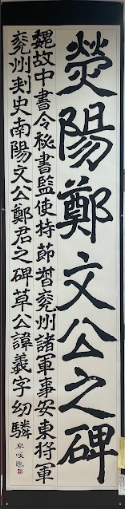 熒陽鄭文公之碑
魏故中書令秘書監使持節督兗州諸軍事安東將軍
兗州刺史南陽文公鄭君之碑草公諱羲字幼驎